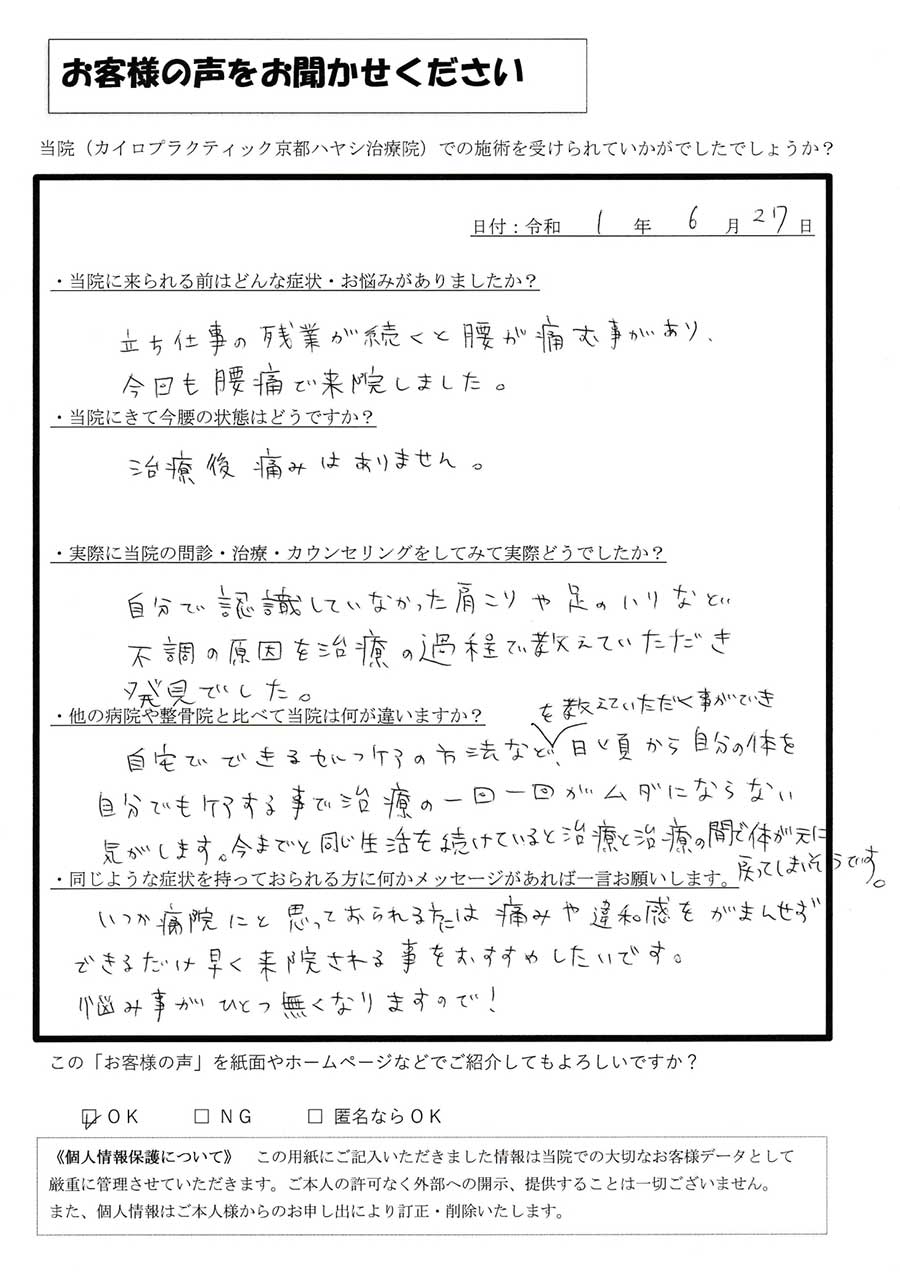 お客様の声をお聞かせください
当院（カイロプラクティック京都ハヤシ治療院）での施術を受けられていかがでしたでしょうか？
日付：令和 1 年 6 月 27 日
・当院に来られる前はどんな症状・お悩みがありましたか？
立ち仕事の残業が続くと腰が痛む事があり、
今回も腰痛で来院しました。
・当院にきて今腰の状態はどうですか？
治療後痛みはありません。
・実際に当院の問診・治療・カウンセリングをしてみて実際どうでしたか？
自分で認識していなかった肩こりや足のハリなど
不調の原因を治療の過程で教えていただき
発見でした。
・他の病院や整骨院と比べて当院は何が違いますか？
を教えていただく事ができ
自宅でできるセルフケアの方法など、日頃から自分の体を
自分でもケアする事で治療の一回一回がムダにならない
気がします。今までと同じ生活を続けていると治療と治療の間で体が元に
戻ってしまいそうです。
・同じような症状を持っておられる方に何かメッセージがあれば一言お願いします。
いつか病院にと思っておられる方には痛みや違和感をがまんせず
できるだけ早く来院される事をおすすめしたいです。
悩み事がひとつ無くなりますので！
この「お客様の声」を紙面やホームページなどでご紹介してもよろしいですか？
☑ＯＫ □ＮＧ □匿名ならＯＫ
《個人情報保護について》 この用紙にご記入いただきました情報は当院での大切なお客様データとして
厳重に管理させていただきます。ご本人の許可なく外部への開示、提供することは一切ございません。
また、個人情報はご本人様からのお申し出により訂正・削除いたします。